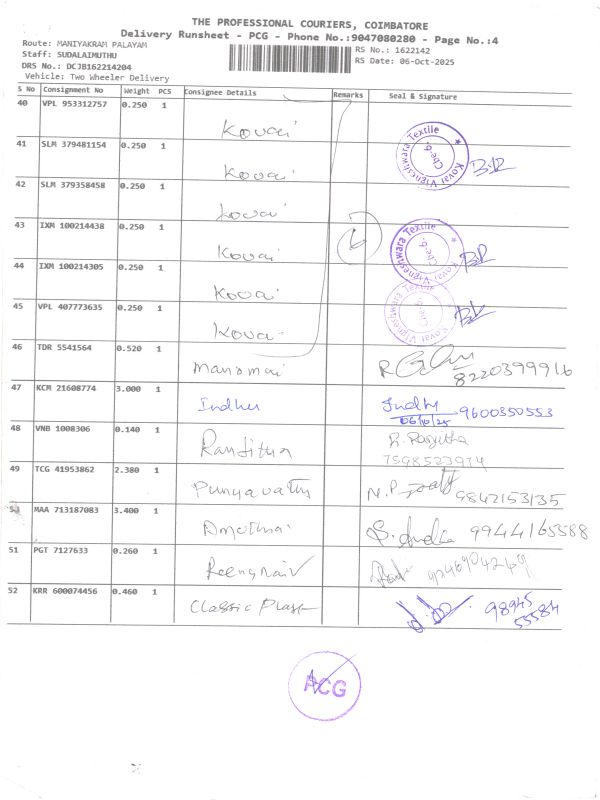 THE PROFESSIONAL COURIERS, COIMBATORE
Delivery Runsheet - PCG - Phone No.:9047080280 - Page No.:4
Route: MANIYAKRAM PALAYAM
RS No.: 1622142
Staff: SUDALAIMUTHU
RS Date: 06-Oct-2025
DRS No.: DCJB162214204
Vehicle: Two Wheeler Delivery
S No Consignment No Weight PCS Consignee Details Remarks Seal & Signature
40 VPL 953312757 0.250 1 Kovai
Kovai Vigneshwara Textile Cbe-6.
41 SLM 379481154 0.250 1 Kovai
42 SLM 379358458 0.250 1 Kovai
43 IXM 100214438 0.250 1 Kovai 6
Kovai Vigneshwara Textile Cbe-6.
44 IXM 100214305 0.250 1 Kovai
Kovai Vigneshwara Textile Cbe-6.
45 VPL 407773635 0.250 1 Kovai
46 TDR 5541564 0.520 1 Manomai
8220399916
47 KCM 21608774 3.000 1 Indhu 9600350553
06/10/25
48 VNB 1008306 0.140 1 Ranjitha R. Ranjitha
7598523974
49 TCG 41953862 2.380 1 Punyavathi 9842153135
50 MAA 713187083 3.400 1 S. India 9944165588
51 PGT 7127633 0.260 1 9246904269
52 KRR 600074456 0.460 1 Classic Plast 98945
55584
ACG